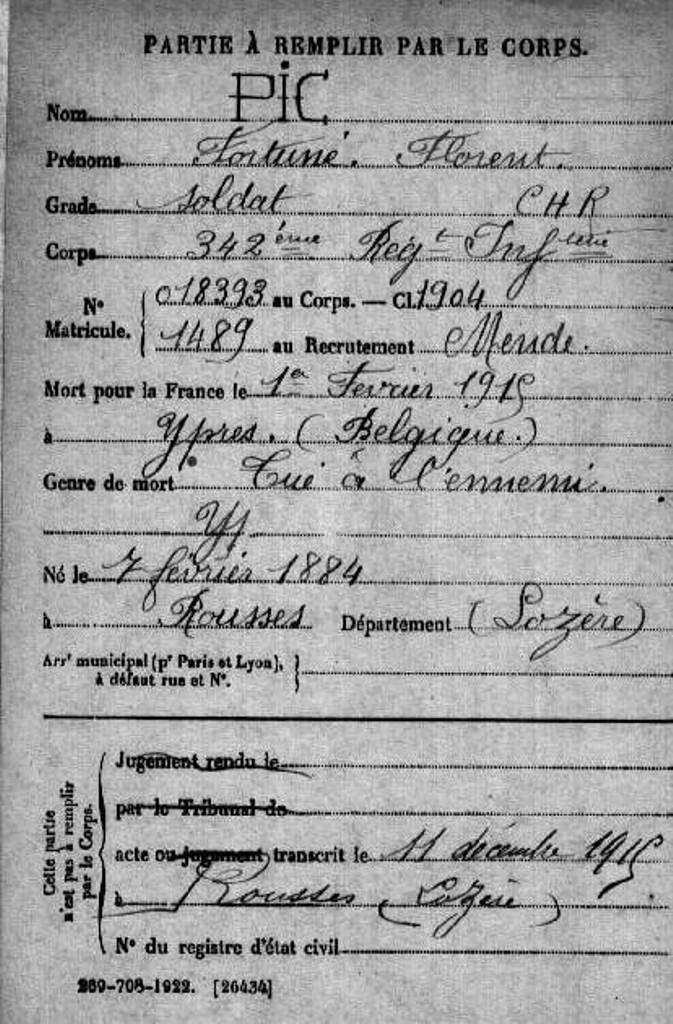 PARTIE À REMPLIR PAR LE CORPS.
Nom PIC
Prénoms Fortuné. Florent.
Grade soldat C H R
Corps 342 ème Régt Infterie
No Matricule. 018393 au Corps. — Cl. 1904
1489 au Recrutement Mende.
Mort pour la France le 1er Fevrier 1915
à Ypres. (Belgique.)
Genre de mort Tué à l'ennemi.
Né le 7 février 1884
à Rousses Département (Lozère)
Arrt municipal (pr Paris et Lyon),
à défaut rue et No.
Cette partie n'est pas à remplir par le Corps.
Jugement rendu le
par le Tribunal de
acte ou jugement transcrit le 11 décembre 1915
à Rousses (Lozère)
No du registre d'état civil
269-708-1922. [26434]